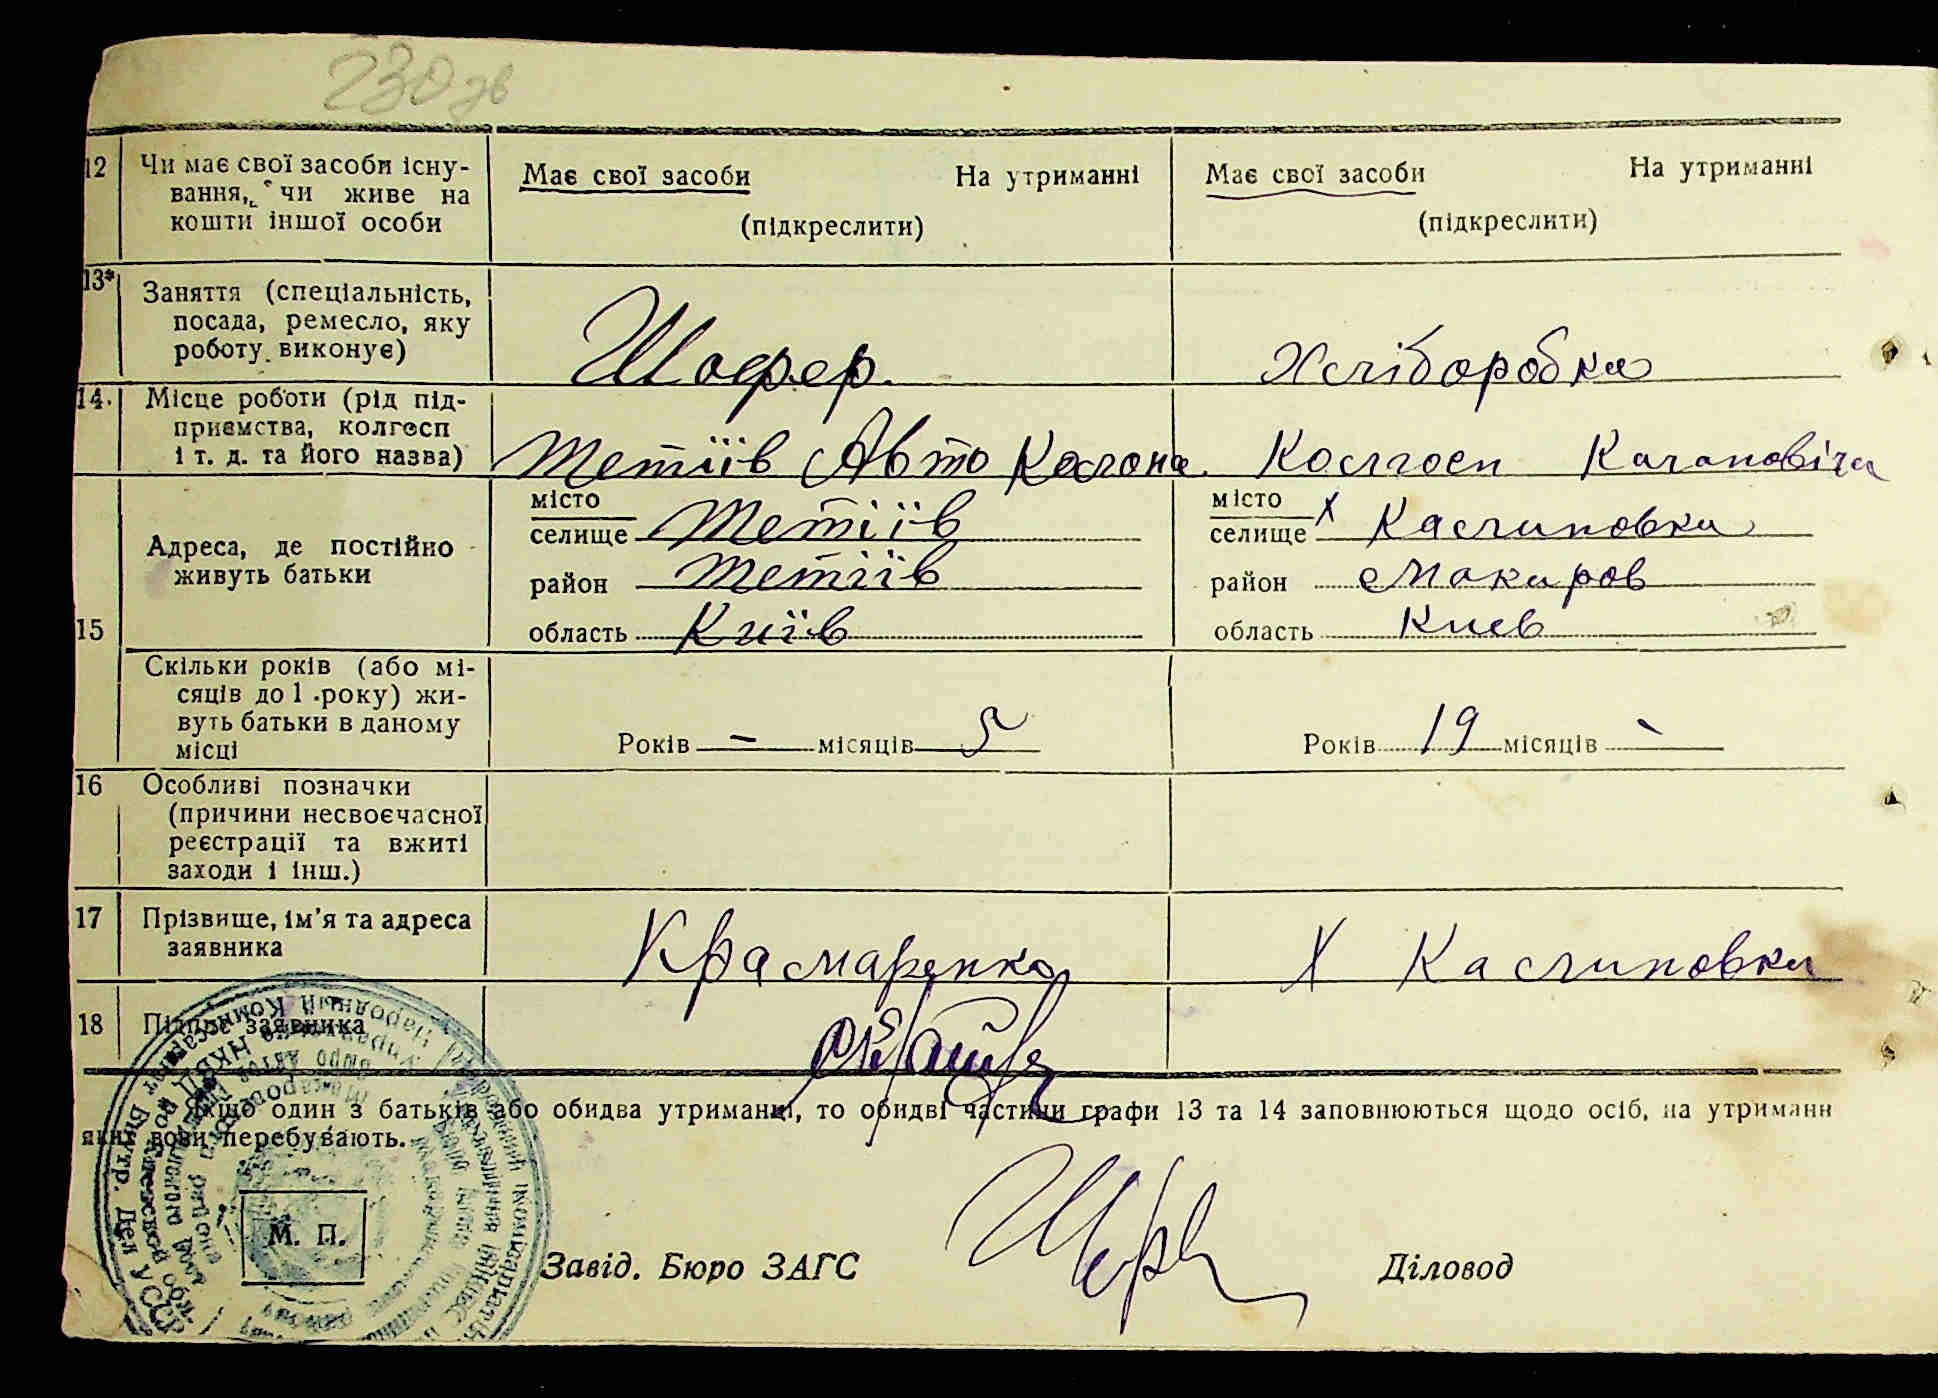 230 зв
12 Чи має свої засоби існу-
вання, чи живе на
кошти іншої особи
Має свої засоби На утриманні
(підкреслити)
Має свої засоби На утриманні
(підкреслити)
13* Заняття (спеціальність,
посада, ремесло, яку
роботу виконує)
Шофер.
Хліборобка
14. Місце роботи (рід під-
приємства, колгосп
і т. д. та його назва)
Тетіїв Авто Колона.
Колгосп Кагановіча
15 Адреса, де постійно
живуть батьки
місто
селище Тетіїв
район Тетіїв
область Київ
місто
селище х Калиновка
район Макаров
область Киев
Скільки років (або мі-
сяців до 1 року) жи-
вуть батьки в даному
місці
Років – місяців 5
Років 19 місяців -
16 Особливі позначки
(причини несвоєчасної
реєстрації та вжиті
заходи і інш.)
17 Прізвище, ім'я та адреса
заявника
Крамаренко
х Калиновка
18 Підпис заявника
Якщо один з батьків або обидва утриманці, то обидві частини графи 13 та 14 заповнюються щодо осіб, на утриманн
яких вони перебувають.
М. П.
Завід. Бюро ЗАГС
Діловод